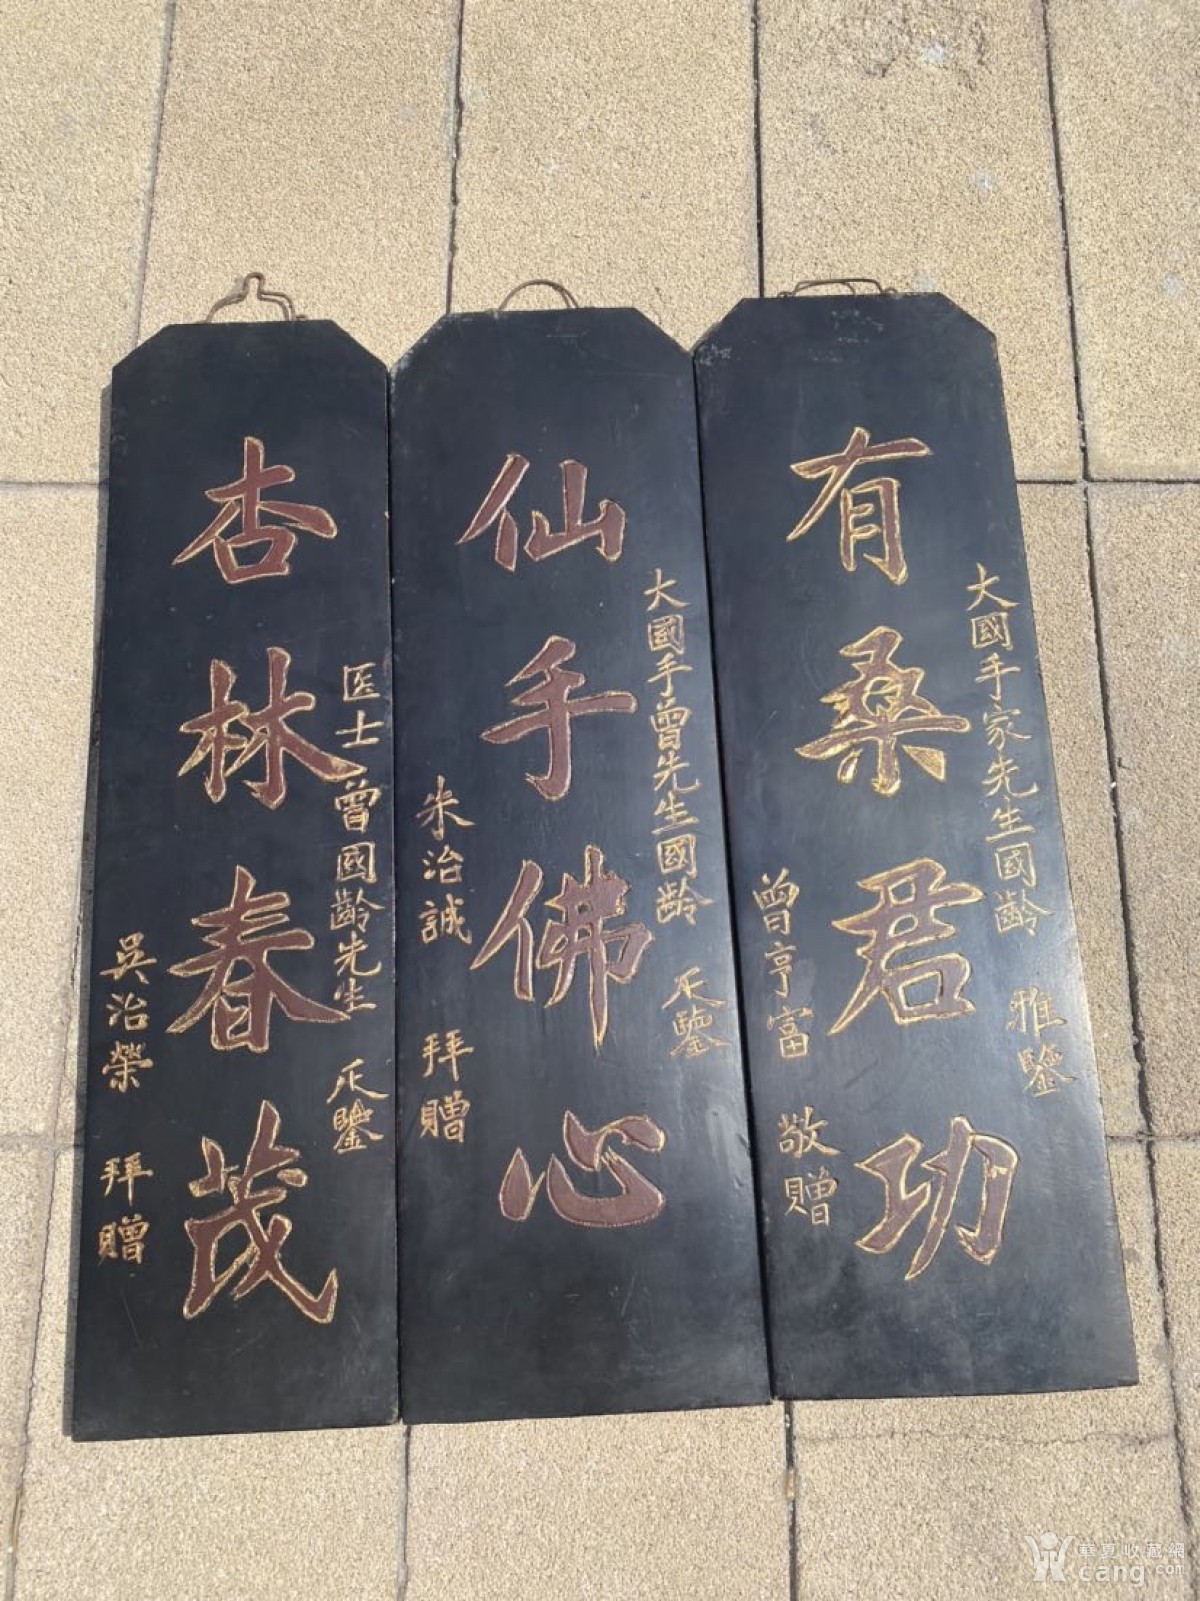 大國手家先生國齡 雅鑒
有桑君功
曾亨富 敬贈
大國手曾先生國齡 鑒
仙手佛心
朱治誠 拜贈
医士曾國齡先生 鑒
杏林春茂
吳治榮 拜贈
華夏收藏網
cang.com